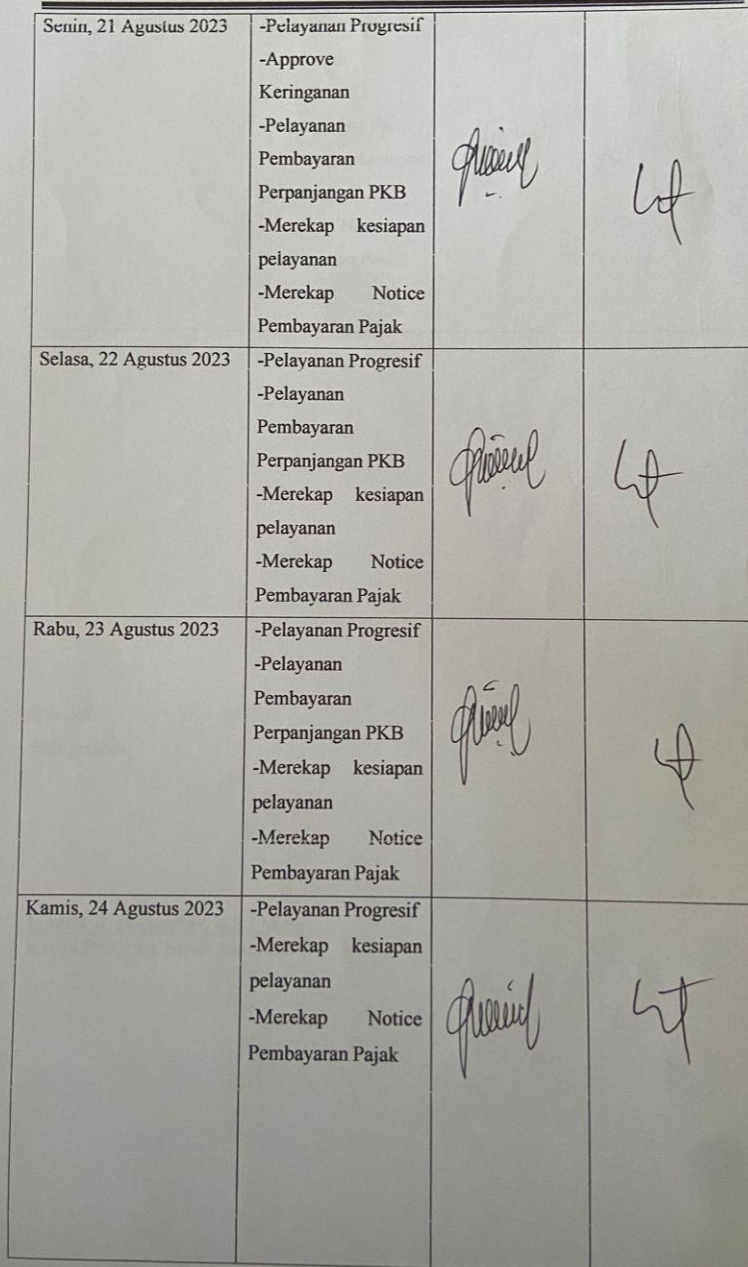 Senin, 21 Agustus 2023
-Pelayanan Progresif
-Approve
Keringanan
-Pelayanan
Pembayaran
Perpanjangan PKB
-Merekap kesiapan
pelayanan
-Merekap Notice
Pembayaran Pajak
Selasa, 22 Agustus 2023
-Pelayanan Progresif
-Pelayanan
Pembayaran
Perpanjangan PKB
-Merekap kesiapan
pelayanan
-Merekap Notice
Pembayaran Pajak
Rabu, 23 Agustus 2023
-Pelayanan Progresif
-Pelayanan
Pembayaran
Perpanjangan PKB
-Merekap kesiapan
pelayanan
-Merekap Notice
Pembayaran Pajak
Kamis, 24 Agustus 2023
-Pelayanan Progresif
-Merekap kesiapan
pelayanan
-Merekap Notice
Pembayaran Pajak